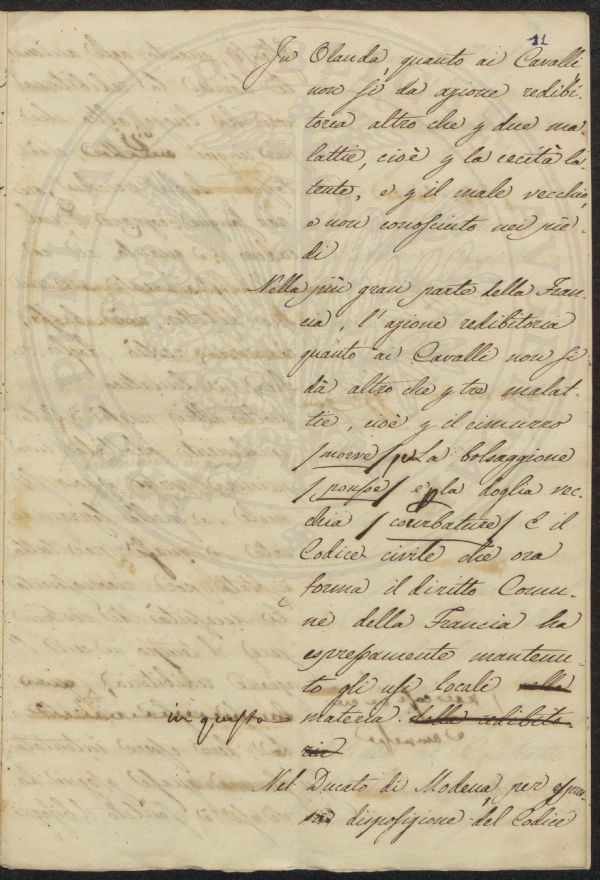 11
In Olanda, quanto ai Cavalli
non si da azione redibi-
toria altro che p due ma-
lattie, cioè p la cecità la-
tente, e p il male vecchio,
e non conosciuto nei pie-
di
Nella più gran parte della Fran-
cia, l'azione redibitoria
quanto ai Cavalli non si
dà altro che p tre malat-
tie, cioè p il cimurro
/morve/ p la bolsaggione
/pousse/ e p la doglia vec-
chia /courbature/ E il
Codice civile che ora
forma il diritto Comu-
ne della Francia ha
espressamente mantenu-
to gli usi locali nella
in questa materia. della redibito-
ria
Nel Ducato di Modena, per espres-
sa disposizione del Codice